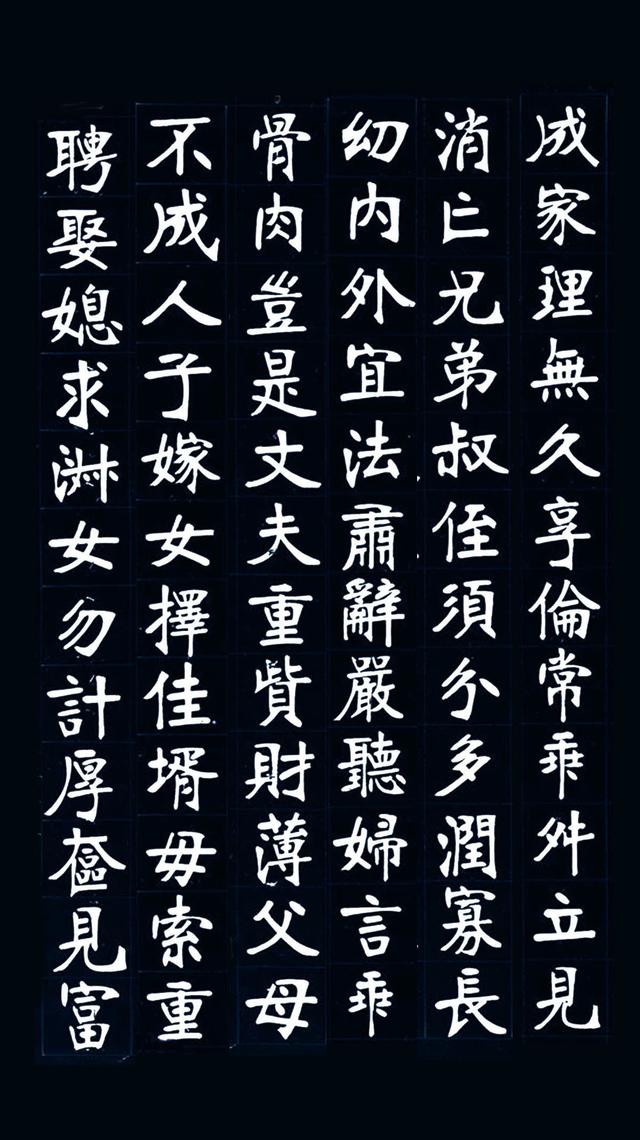 成家理無久享倫常乖舛立見
消亡兄弟叔侄須分多潤寡長
幼内外宜法肅辭嚴聽婦言乖
骨肉豈是丈夫重貲財薄父母
不成人子嫁女擇佳壻毋索重
聘娶媳求淑女勿計厚奩見富